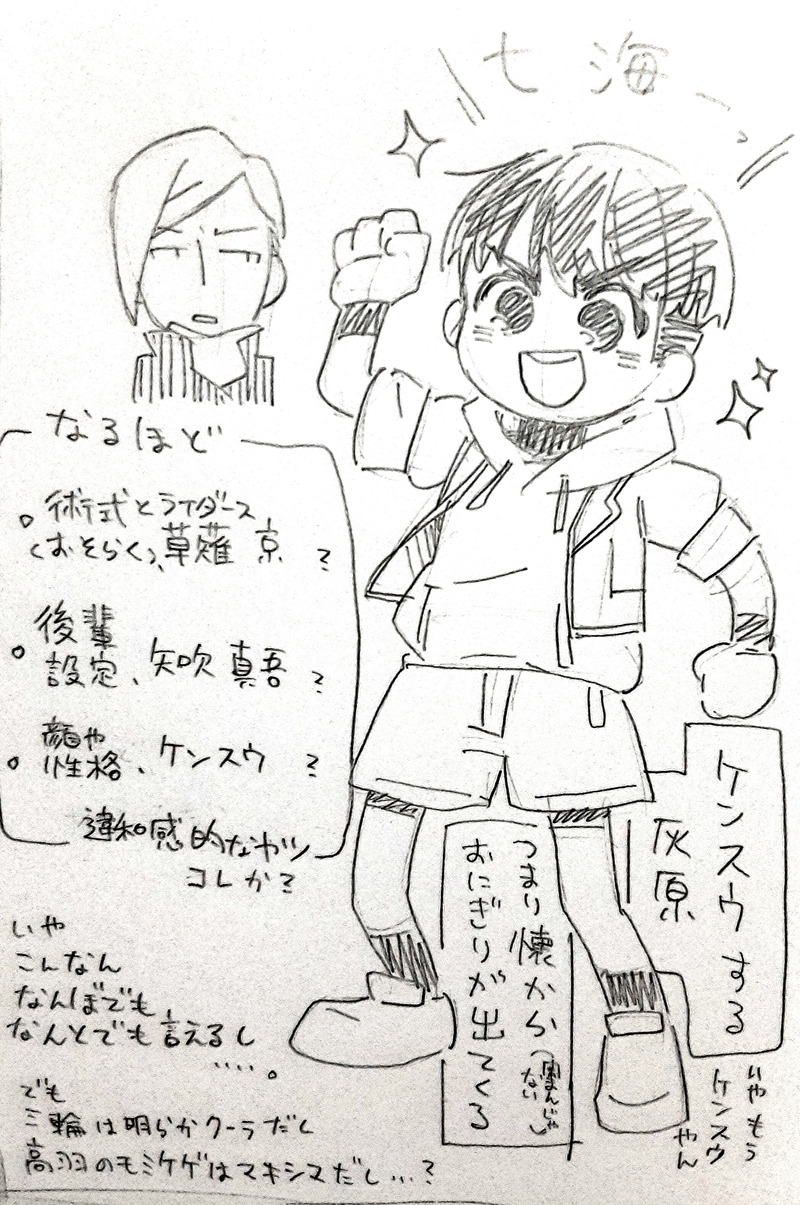 七海ーっ
なるほど
。術式とライダース
(おそらく)、草薙 京 ?
。後輩
設定、矢吹 真吾 ?
。顔や
性格、ケンスウ ?
違和感的なヤツ
コレか?
ケンスウする
灰原
つまり懐から(肉まんじゃない)
おにぎりが出てくる
いやもう
ケンスウ
やん
いや
こんなん
なんぼでも
なんとでも言えるし
‥‥。
でも
三輪は明らかクーラだし
高羽のモミアゲはマキシマだし…?